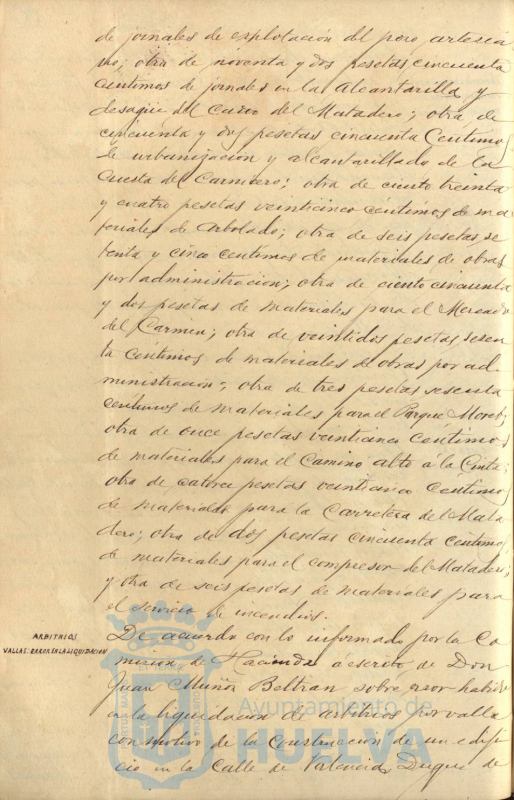 de jornales de explotación del pozo artesia
no; otra de noventa y dos pesetas cincuenta
centimos de jornales en la Alcantarilla y
desagüe del Cuzco del Matadero; otra de
cincuenta y dos pesetas cincuenta Centimos
de urbanizacion y alcantarillado de la
Cuesta del Carnicero; otra de ciento treinta
y cuatro pesetas veinticinco céntimos de ma
teriales de Arbolado; otra de seis pesetas se
tenta y cinco centimos de materiales de obras
por administracion; otra de ciento cincuenta
y dos pesetas de materiales para el Mercado
del Carmen; otra de veintidos pesetas sesen
ta céntimos de materiales de obras por ad
ministración; otra de tres pesetas sesenta
centimos de materiales para el Parque Moret;
otra de once pesetas veinticinco centimos
de materiales para el Camino alto á la Cinta;
otra de catorce pesetas veinticinco centimos
de materiales para la Carretera del Mata
dero; otra de dos pesetas cincuenta centimos
de materiales para el compresor del Matadero;
y otra de seis pesetas de materiales para
el servicio de incendios.
ARBITRIOS
VALLAS. ERROR EN LA LIQUIDACION
De acuerdo con lo informado por la Co
mision de Hacienda a escrito de Don
Juan Muñoz Beltran sobre error habido
en la liquidacion de arbitrios por valla
con motivo de la construccion de un edifi
cio en la Calle de Valencia, Duque de
Ayuntamiento de
HUELVA